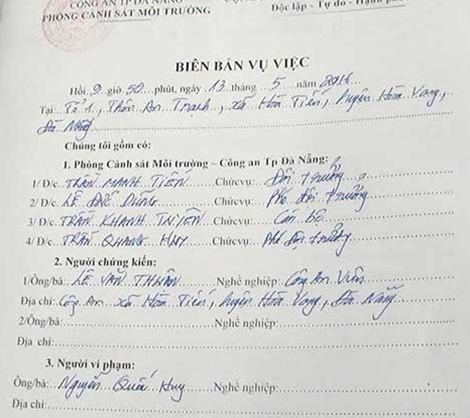 CÔNG AN TP ĐÀ NẴNG
PHÒNG CẢNH SÁT MÔI TRƯỜNG
Độc lập - Tự do - Hạnh
BIÊN BẢN VỤ VIỆC
Hồi 9 giờ 50 phút, ngày 13 tháng 5 năm 2016
Tại: Tổ 1, Thôn An Trạch, xã Hòa Tiến, huyện Hòa Vang,
Đà Nẵng
Chúng tôi gồm có:
1. Phòng Cảnh sát Môi trường – Công an Tp Đà Nẵng:
1/ Đ/c TRẦN MẠNH TIẾN Chức vụ: Đội trưởng
2/ Đ/c LÊ ĐỨC DŨNG Chức vụ: Phó đội trưởng
3/ Đ/c TRẦN KHÁNH Chức vụ: Cán bộ
4/ Đ/c TRẦN QUANG HUY Chức vụ: Phó đội trưởng
2. Người chứng kiến:
1/Ông/bà: LÊ VĂN Nghề nghiệp: Công An Viên
Địa chỉ: Công An xã Hòa Tiến, huyện Hòa Vang, Đà Nẵng
2/Ông/bà: Nghề nghiệp:
Địa chỉ:
3. Người vi phạm:
Ông/bà: Nguyễn Quốc Huy Nghề nghiệp:
Địa chỉ: